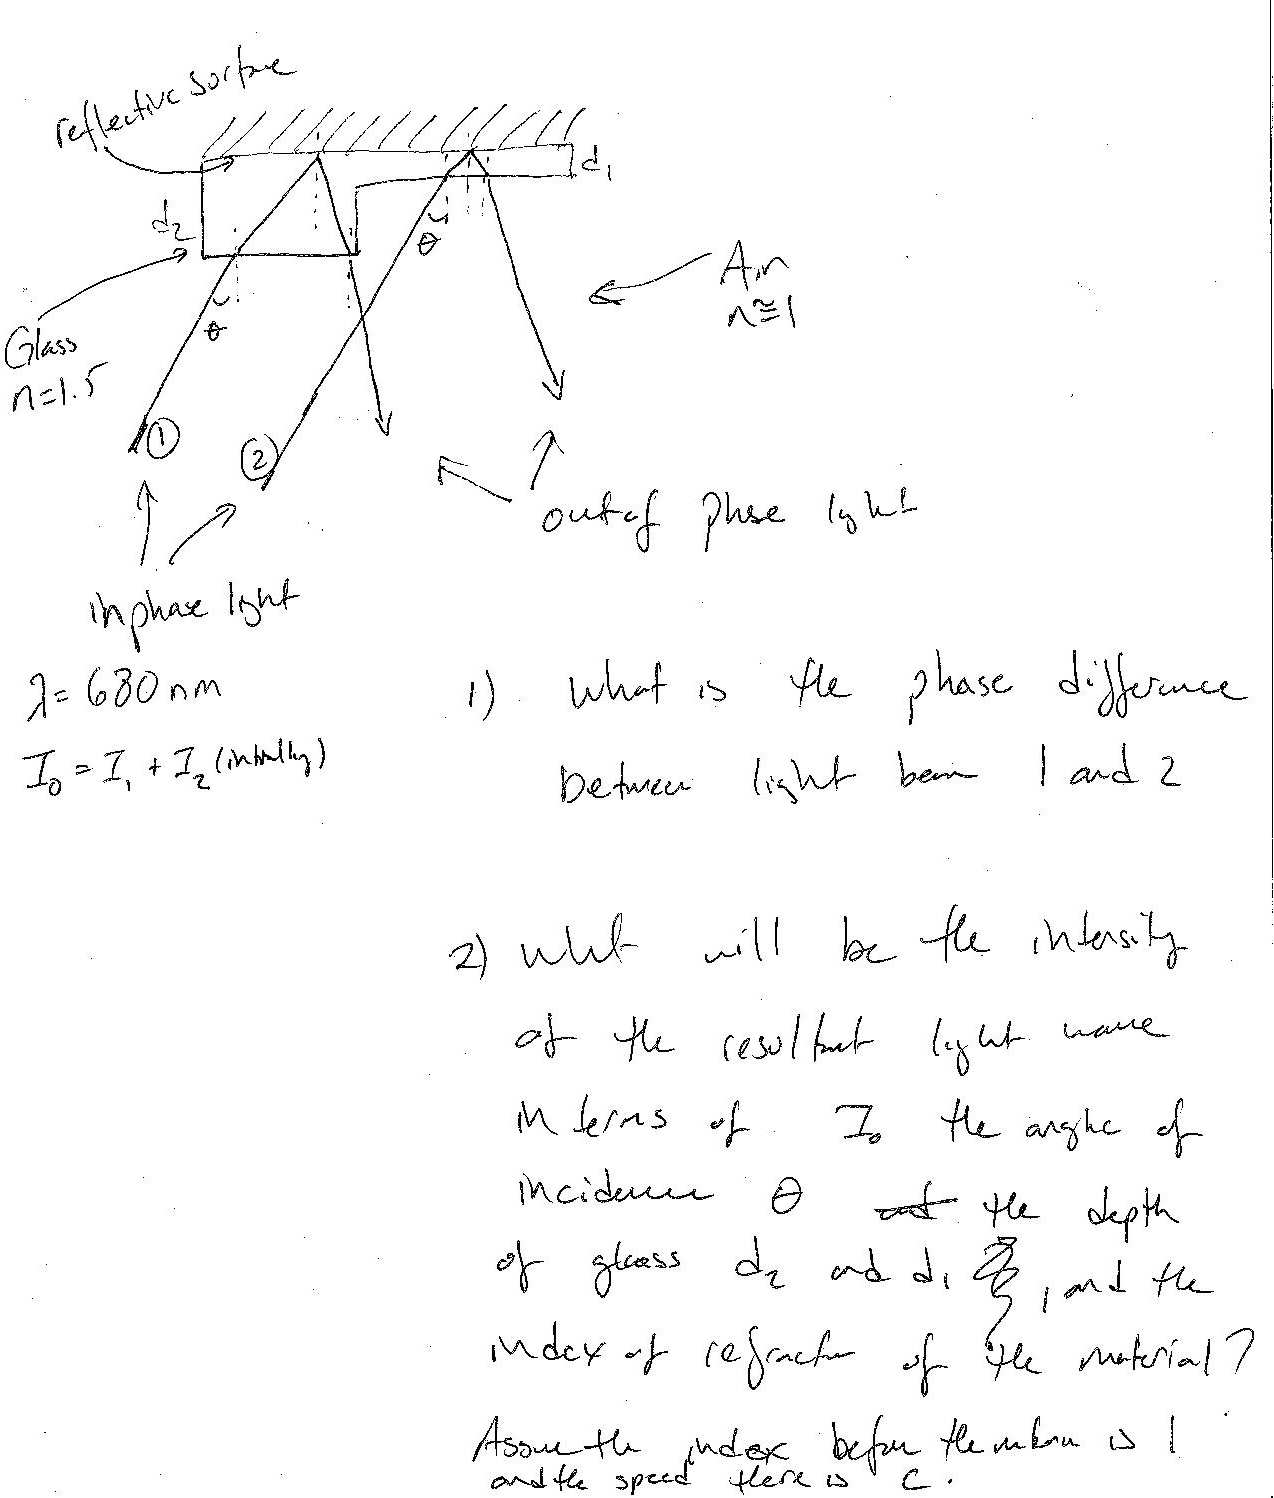 reflective surface
d1
d2
θ
θ
Air
n≅1
Glass
n=1.5
1
2
out of phase light
in phase light
λ=680nm
I0 = I1 + I2 (initially)
1) What is the phase difference
between light beam 1 and 2
2) What will be the intensity
of the resultant light wave
in terms of I0 the angle of
incidence θ the depth
of glass d2 and d1, and the
index of refraction of the material?
Assume the index before the is 1
and the speed there is c.